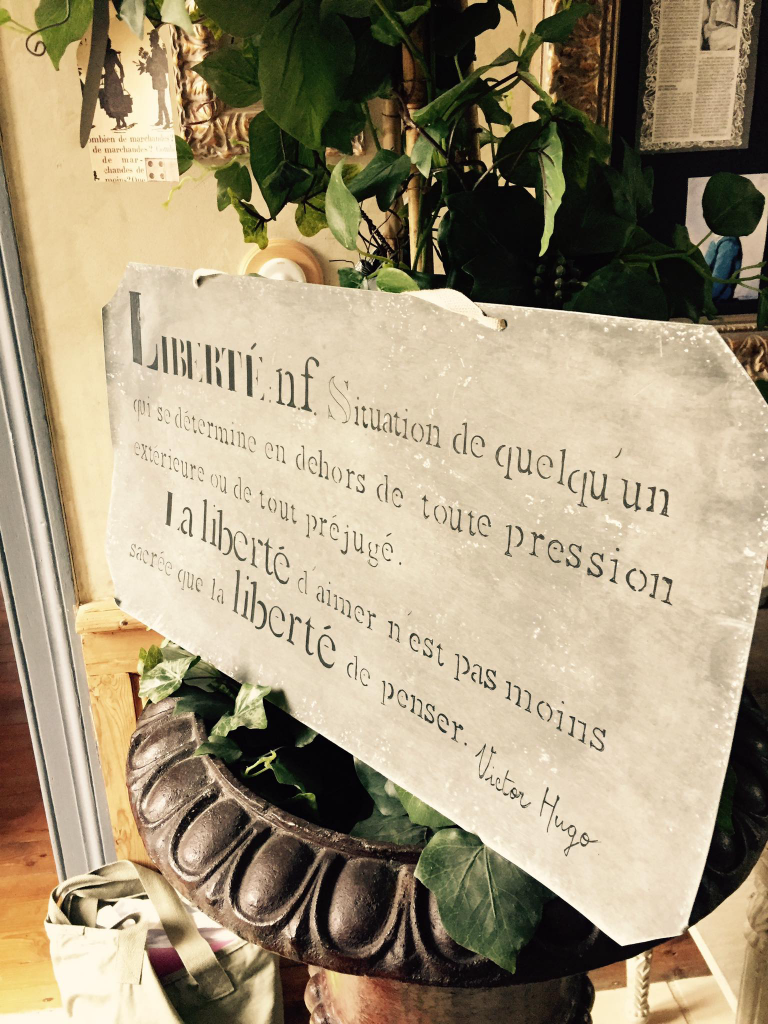 ombien de marchands
de marchandes?
de mar-
chandes de
LIBERTÉ: nf. Situation de quelqu'un
qui se détermine en dehors de toute pression
extérieure ou de tout préjugé.
La liberté d'aimer n'est pas moins
sacrée que la liberté de penser.
Victor Hugo